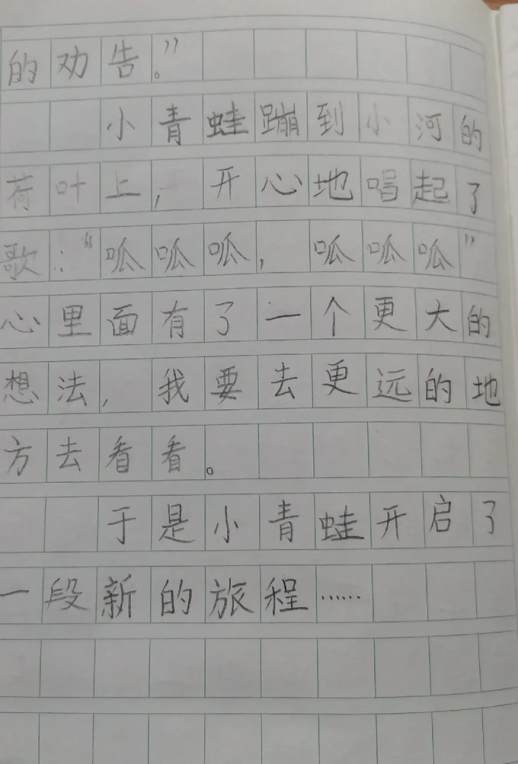 的劝告。”
小青蛙蹦到小河的
荷叶上，开心地唱起了
歌：“呱呱呱，呱呱呱”
心里面有了一个更大的
想法，我要去更远的地
方去看看。
于是小青蛙开启了
一段新的旅程……